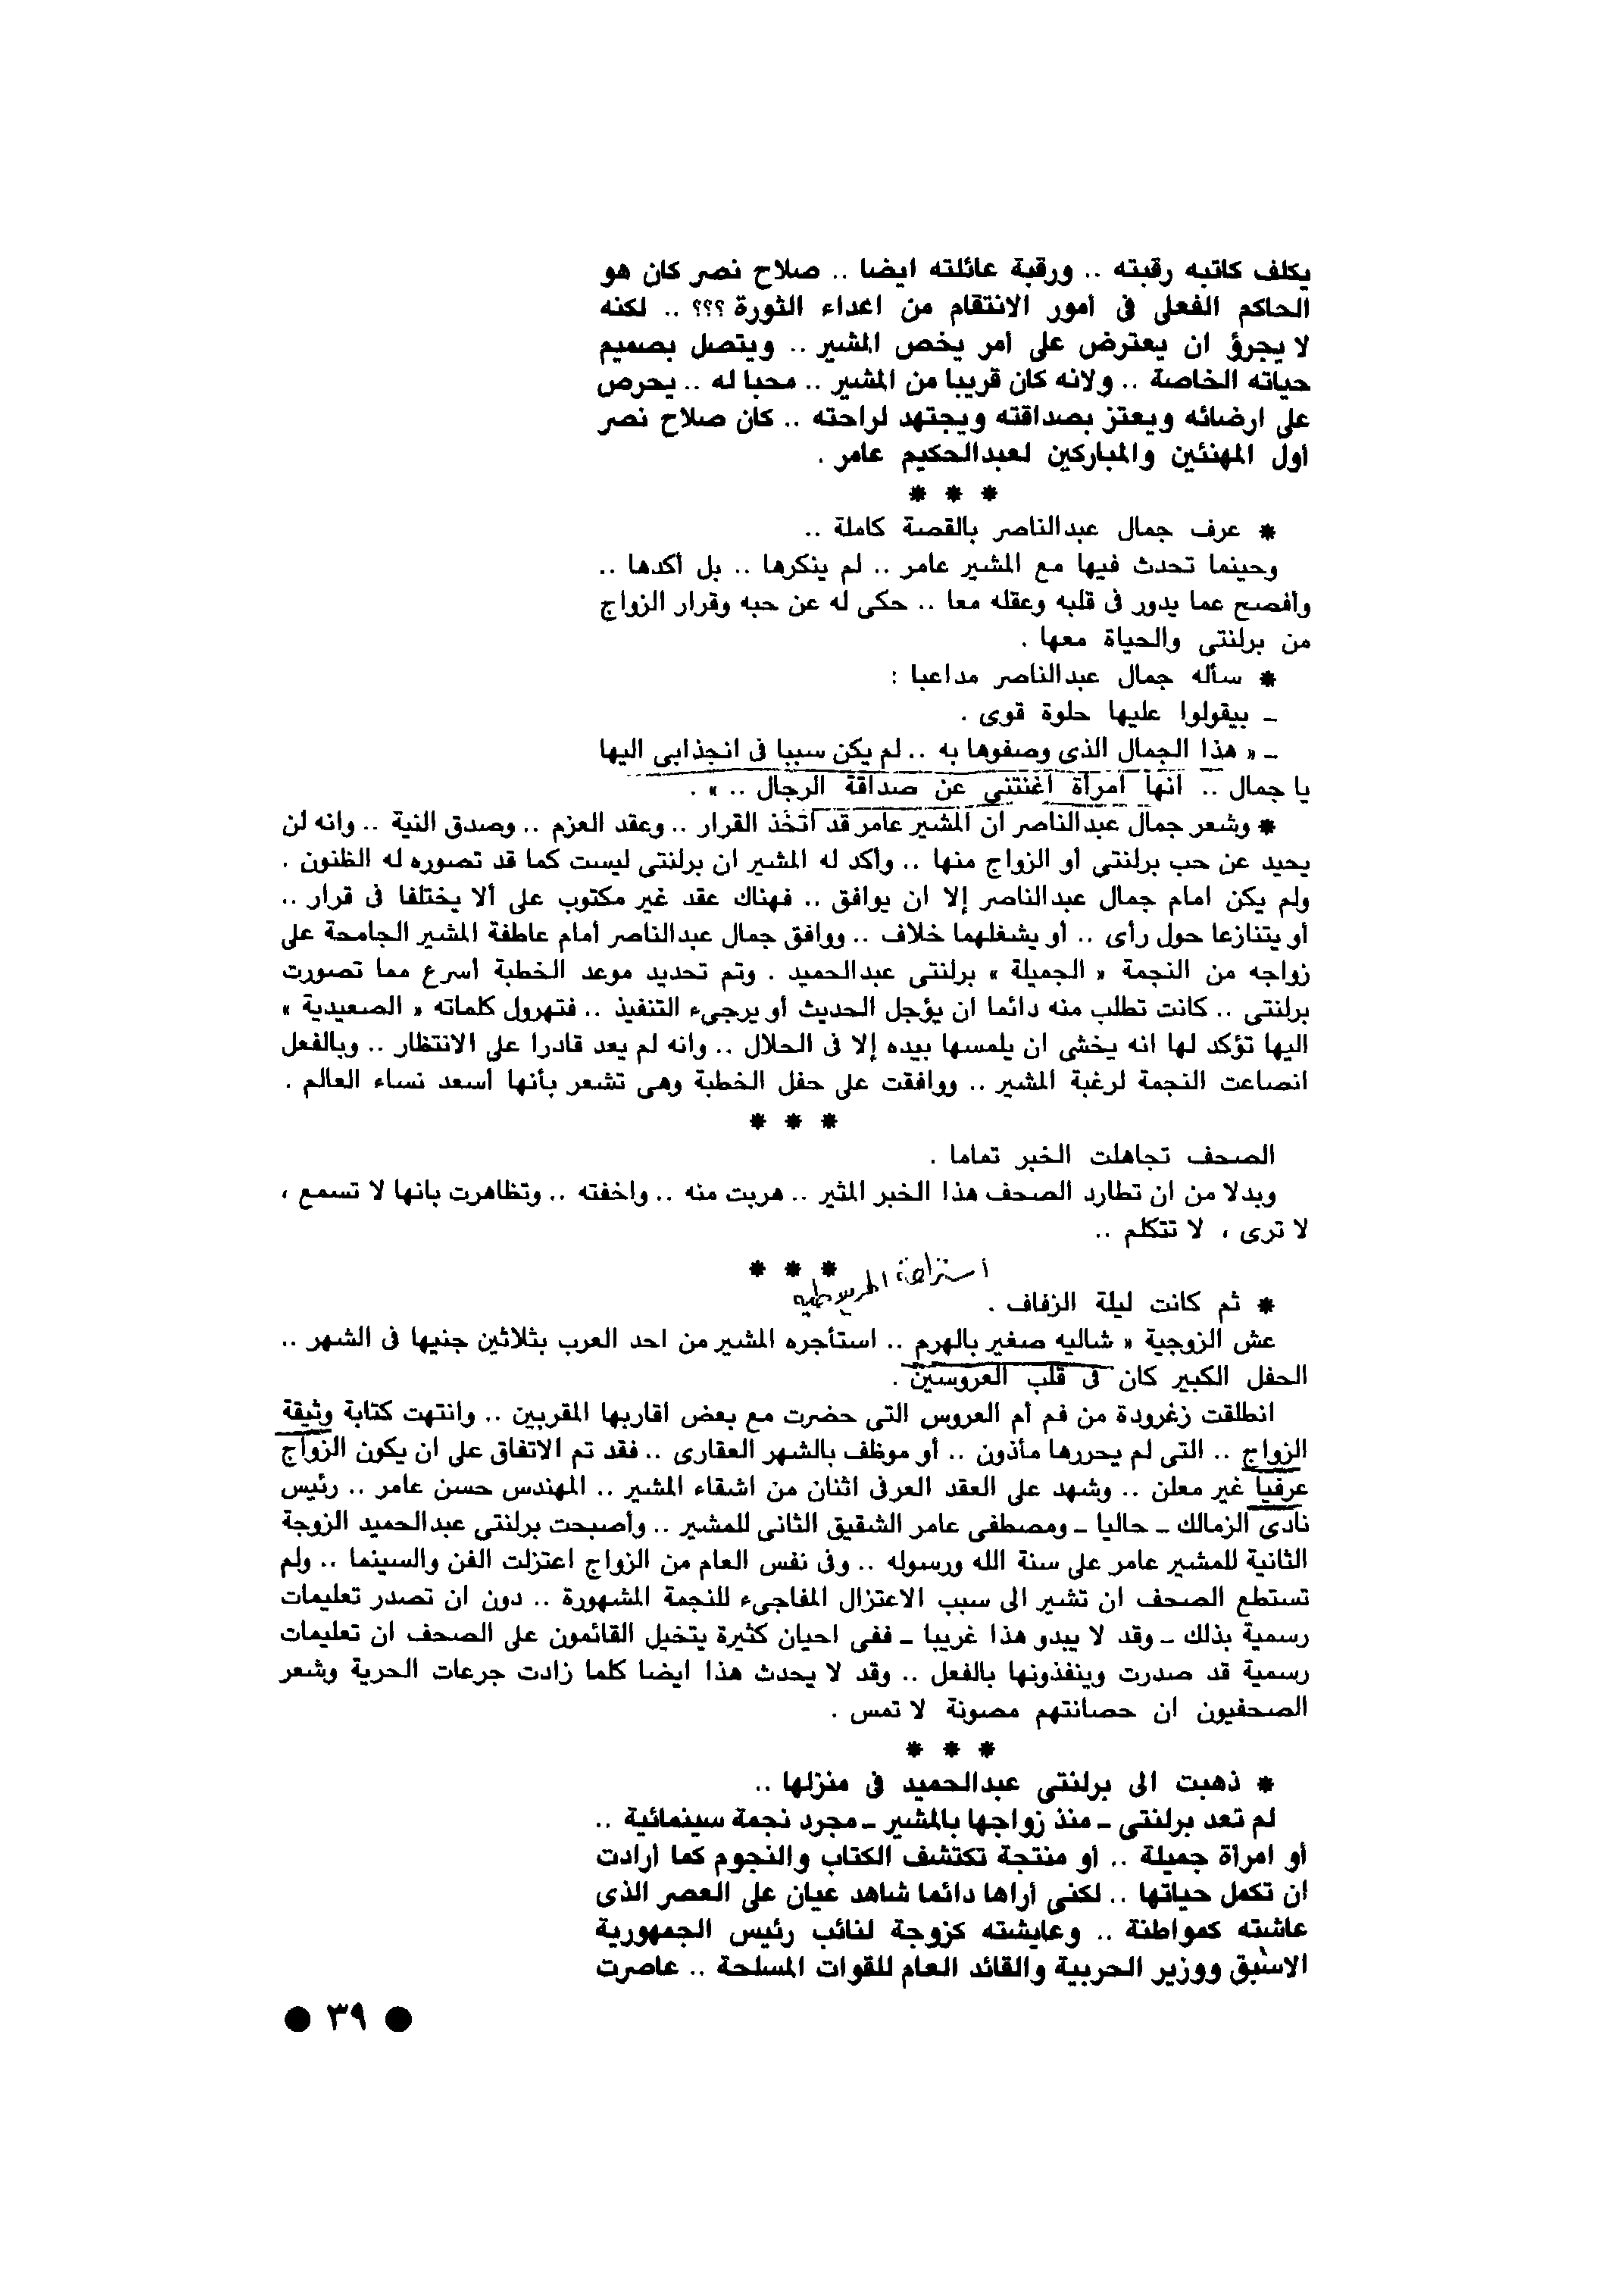 يكلف كاتبه رقبته .. ورقبة عائلته ايضا .. صلاح نصر كان هو
الحاكم الفعلى فى أمور الانتقام من اعداء الثورة ؟؟؟ .. لكنه
لا يجرؤ ان يعترض على أمر يخص المشير .. ويتصل بصميم
حياته الخاصة .. ولانه كان قريبا من المشير .. محبا له .. يحرص
على ارضائه ويعتز بصداقته ويجتهد لراحته .. كان صلاح نصر
أول المهنئين والمباركين لعبدالحكيم عامر .
* * *
* عرف جمال عبدالناصر بالقصة كاملة ..
وحينما تحدث فيها مع المشير عامر .. لم ينكرها .. بل أكدها ..
وأفصح عما يدور فى قلبه وعقله معا .. حكى له عن حبه وقرار الزواج
من برلنتى والحياة معها .
* سأله جمال عبدالناصر مداعبا :
ـ بيقولوا عليها حلوة قوى .
ـ « هذا الجمال الذى وصفوها به .. لم يكن سببا فى انجذابى اليها
يا جمال .. انها امرأة أغنتنى عن صداقة الرجال .. » .
* وشعر جمال عبدالناصر ان المشير عامر قد اتخذ القرار .. وعقد العزم .. وصدق النية .. وانه لن
يحيد عن حب برلنتى أو الزواج منها .. وأكد له المشير ان برلنتى ليست كما قد تصوره له الظنون .
ولم يكن امام جمال عبدالناصر إلا ان يوافق .. فهناك عقد غير مكتوب على ألا يختلفا فى قرار ..
أو يتنازعا حول رأى .. أو يشغلهما خلاف .. ووافق جمال عبدالناصر أمام عاطفة المشير الجامحة على
زواجه من النجمة « الجميلة » برلنتى عبدالحميد . وتم تحديد موعد الخطبة أسرع مما تصورت
برلنتى .. كانت تطلب منه دائما ان يؤجل الحديث أو يرجىء التنفيذ .. فتهرول كلماته « الصعيدية »
اليها تؤكد لها انه يخشى ان يلمسها بيده إلا فى الحلال .. وانه لم يعد قادرا على الانتظار .. وبالفعل
انصاعت النجمة لرغبة المشير .. ووافقت على حفل الخطبة وهى تشعر بأنها أسعد نساء العالم .
* * *
الصحف تجاهلت الخبر تماما .
وبدلا من ان تطارد الصحف هذا الخبر المثير .. هربت منه .. واخفته .. وتظاهرت بانها لا تسمع ،
لا ترى ، لا تتكلم ..
* * *
استراحة
* ثم كانت ليلة الزفاف .
عش الزوجية « شاليه صغير بالهرم .. استأجره المشير من احد العرب بثلاثين جنيها فى الشهر ..
الحفل الكبير كان فى قلب العروسين .
انطلقت زغرودة من فم أم العروس التى حضرت مع بعض اقاربها المقربين .. وانتهت كتابة وثيقة
الزواج .. التى لم يحررها مأذون .. أو موظف بالشهر العقارى .. فقد تم الاتفاق على ان يكون الزواج
عرفيا غير معلن .. وشهد على العقد العرفى اثنان من اشقاء المشير .. المهندس حسن عامر .. رئيس
نادى الزمالك ـ حاليا ـ ومصطفى عامر الشقيق الثانى للمشير .. وأصبحت برلنتى عبدالحميد الزوجة
الثانية للمشير عامر على سنة الله ورسوله .. وفى نفس العام من الزواج اعتزلت الفن والسينما .. ولم
تستطع الصحف ان تشير الى سبب الاعتزال المفاجىء للنجمة المشهورة .. دون ان تصدر تعليمات
رسمية بذلك ـ وقد لا يبدو هذا غريبا ـ ففى احيان كثيرة يتخيل القائمون على الصحف ان تعليمات
رسمية قد صدرت وينفذونها بالفعل .. وقد لا يحدث هذا ايضا كلما زادت جرعات الحرية وشعر
الصحفيون ان حصانتهم مصونة لا تمس .
* * *
* ذهبت الى برلنتى عبدالحميد فى منزلها ..
لم تعد برلنتى ـ منذ زواجها بالمشير ـ مجرد نجمة سينمائية ..
أو امرأة جميلة .. أو منتجة تكتشف الكتاب والنجوم كما أرادت
ان تكمل حياتها .. لكنى أراها دائما شاهد عيان على العصر الذى
عاشته كمواطنة .. وعايشته كزوجة لنائب رئيس الجمهورية
الاسبق ووزير الحربية والقائد العام للقوات المسلحة .. عاصرت
● ٣٩ ●